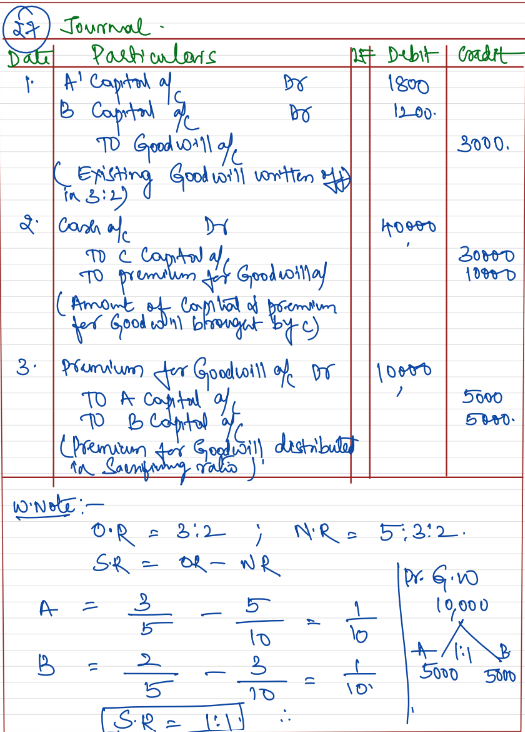 27 Journal.
Date Particulars LF Debit Credit
1. A' Capital a/c Dr 1800
B Capital a/c Dr 1200.
TO Goodwill a/c 3000.
(Existing Goodwill written off
in 3:2)
2. Cash a/c Dr 40000
TO C Capital a/c 30000
TO premium for Goodwill a/ 10000
(Amount of Capital & premium
for Goodwill brought by C)
3. Premium for Goodwill a/c Dr 10000
TO A Capital a/c 5000
TO B Capital a/c 5000.
(Premium for Goodwill distributed
in Sacrificing ratio)
W.Note:-
O.R = 3:2 ; N.R = 5:3:2.
S.R = OR - NR
A = 3/5 - 5/10 = 1/10
B = 2/5 - 3/10 = 1/10
S.R = 1:1 ∴
Pr. G.W
10,000
A 1:1 B
5000 5000